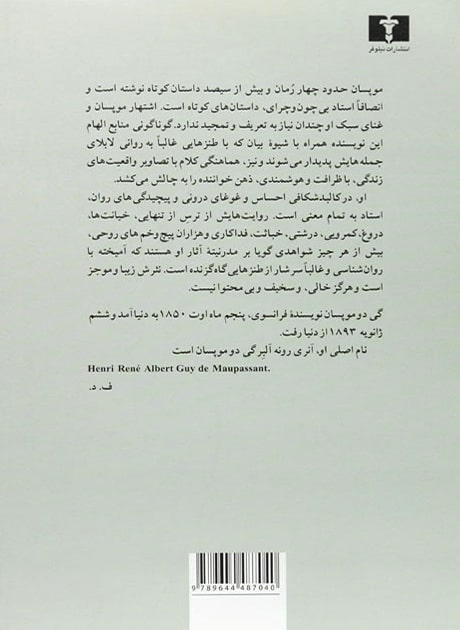 انتشارات نیلوفر
موپسان حدود چهار رُمان و بیش از سیصد داستان کوتاه نوشته است و
انصافاً استاد بی‌چون‌وچرای، داستان‌های کوتاه است. اشتهار موپسان و
غنای سبک او چندان نیاز به تعریف و تمجید ندارد. گوناگونی منابع الهام
این نویسنده همراه با شیوهٔ بیان که با طنزهایی غالباً به روانی لابلای
جمله‌هایش پدیدار می‌شوند و نیز، هماهنگی کلام با تصاویر واقعیت‌های
زندگی، با ظرافت و هوشمندی، ذهن خواننده را به چالش می‌کشد.
او، در کالبدشکافی احساس و غوغای درونی و پیچیدگی‌های روان،
استاد به تمام معنی است. روایت‌هایش از ترسِ از تنهایی، خیانت‌ها،
دروغ، کمرویی، درشتی، خباثت، فداکاری و هزاران پیچ‌وخم های روحی،
بیش از هر چیز شواهدی گویا بر مدرنیتهٔ آثار او هستند که آمیخته با
روان‌شناسی و غالباً سرشار از طنزهایی گاه گزنده است. نثرش زیبا و موجز
است و هرگز خالی، و سخیف و بی‌محتوا نیست.
گی دو موپسان نویسندهٔ فرانسوی، پنجم ماه اوت ۱۸۵۰ به دنیا آمد و ششم
ژانویه ۱۸۹۳ از دنیا رفت.
نام اصلی او، آنری رونه آلبِرگی دو موپسان است
Henri René Albert Guy de Maupassant.
ف. د.
9 789644 487040